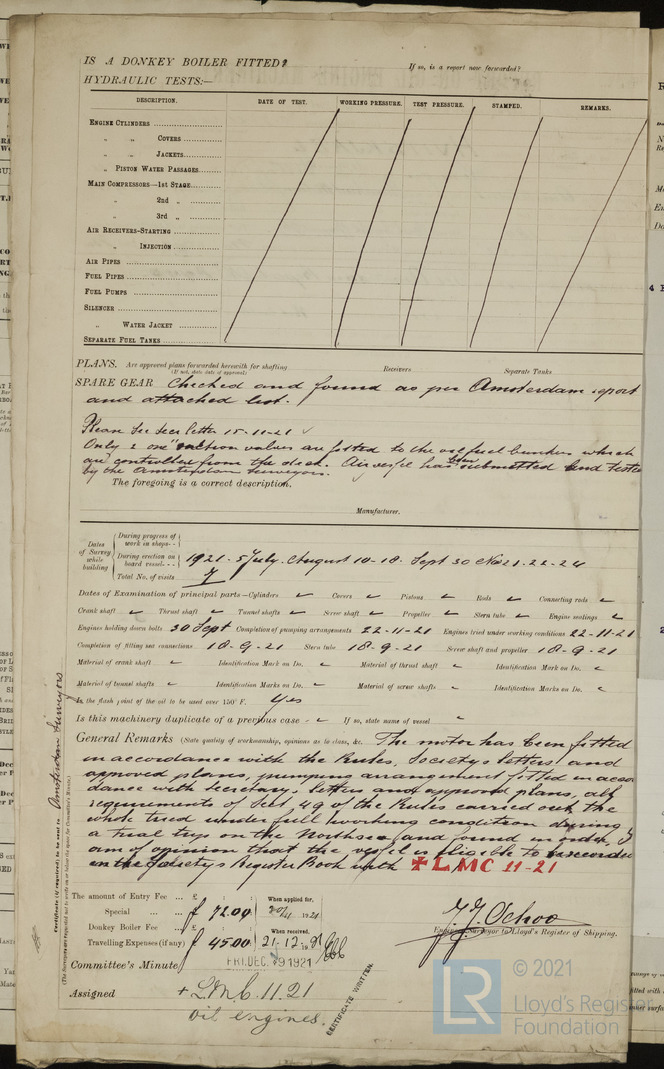 IS A DONKEY BOILER FITTED?
If so, is a report now forwarded?
HYDRAULIC TESTS:—
DESCRIPTION. DATE OF TEST. WORKING PRESSURE. TEST PRESSURE. STAMPED. REMARKS.
ENGINE CYLINDERS
" " COVERS
" " JACKETS
" PISTON WATER PASSAGES
MAIN COMPRESSORS—1st STAGE
" 2nd "
" 3rd "
AIR RECEIVERS-STARTING
" INJECTION
AIR PIPES
FUEL PIPES
FUEL PUMPS
SILENCER
" WATER JACKET
SEPARATE FUEL TANKS
PLANS. Are approved plans forwarded herewith for shafting Receivers Separate Tanks
(If not, state date of approval)
SPARE GEAR Checked and found as per Amsterdam report
and attached list.
Please see letter 15-11-21
Only 2 one suction valves are fitted to the fuel bunkers which
are controlled from the deck. Air vessel has been submitted and tested
by the Amsterdam Surveyors.
The foregoing is a correct description,
Manufacturer.
Dates of Survey while building
During progress of work in shops--
During erection on board vessel--- 1921 - 5 July. August 10-18. Sept 30 Nov 21-22-24
Total No. of visits 7
Dates of Examination of principal parts—Cylinders Covers Pistons Rods Connecting rods
Crank shaft Thrust shaft Tunnel shafts Screw shaft Propeller Stern tube Engine seatings
Engines holding down bolts 30 Sept Completion of pumping arrangements 22-11-21 Engines tried under working conditions 22-11-21
Completion of fitting sea connections 18-9-21 Stern tube 18-9-21 Screw shaft and propeller 18-9-21
Material of crank shaft Identification Mark on Do. Material of thrust shaft Identification Mark on Do.
Material of tunnel shafts Identification Marks on Do. Material of screw shafts Identification Marks on Do.
Is the flash point of the oil to be used over 150° F. Yes
Is this machinery duplicate of a previous case If so, state name of vessel
General Remarks (State quality of workmanship, opinions as to class, &c. The motor has been fitted
in accordance with the Rules, Society's letters and
approved plans, pumping arrangement fitted in accor
dance with Secretary's letters and approved plans, all
requirements of Sect 49 of the Rules carried out, the
whole tried under full working condition during
a trial trip on the Northsea and found in order, I
am of opinion that the vessel is eligible to be recorded
in the Society's Register Book with + LMC 11-21
Certificate (if required) to be sent to Amsterdam Surveyors
(The Surveyors are requested not to write on or below the space for Committee's Minute.)
The amount of Entry Fee ... £
Special ... ... f 72.00
Donkey Boiler Fee ... £
Travelling Expenses (if any) f 45.00
When applied for,
1921
When received,
21-12-21
J.J. Ochoo
Engineer Surveyor to Lloyd's Register of Shipping.
Committee's Minute FRI. DEC. 9 1921
Assigned + LMC. 11.21
oil engines.
CERTIFICATE WRITTEN.
LR
© 2021
Lloyd's Register
Foundation